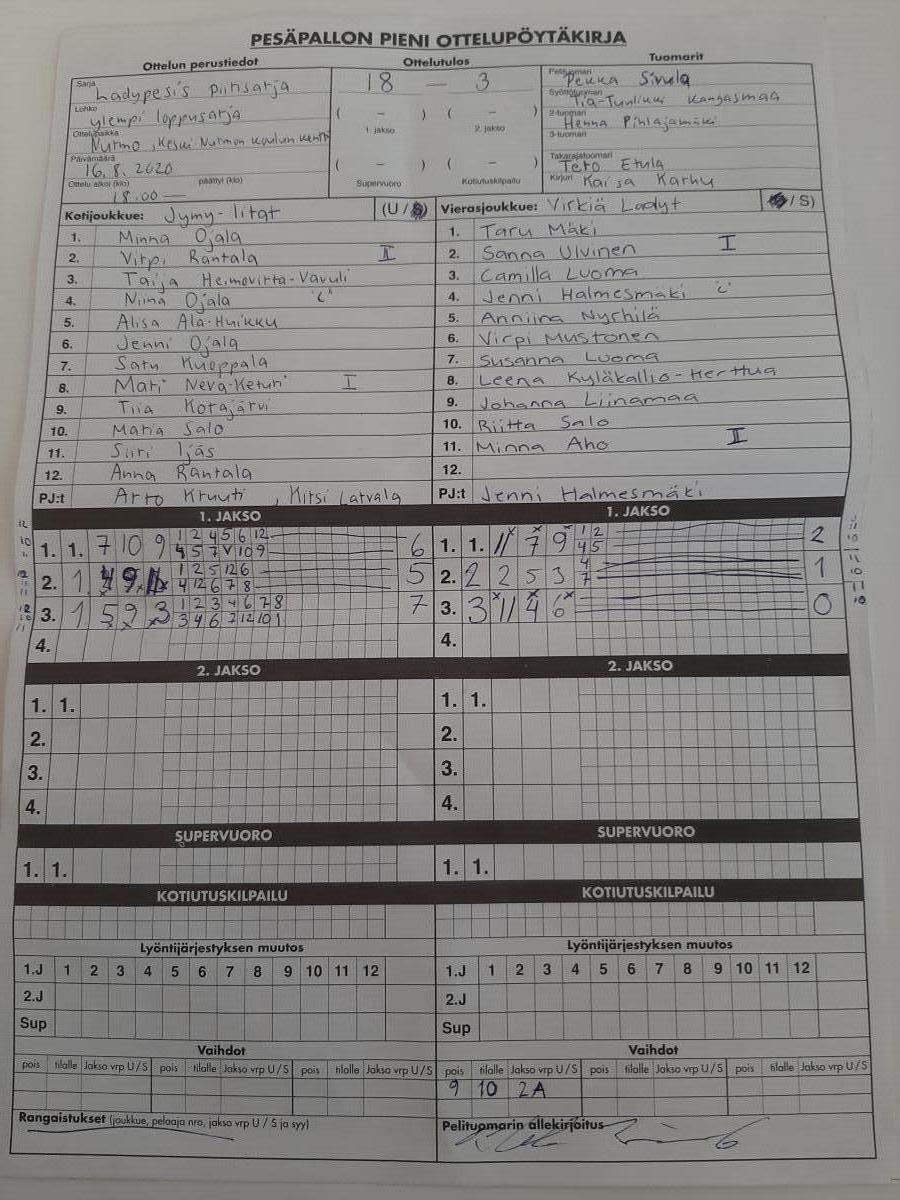 PESÄPALLON PIENI OTTELUPÖYTÄKIRJA
Ottelun perustiedot
Ottelutulos
Tuomarit
Sarja
Ladypesis piirisarja
Lohko
ylempi loppusarja
Ottelupaikka
Nurmo, Keski Nurmon koulun kenttä
Päivämäärä
16.8.2020
Ottelu alkoi (klo) päättyi (klo)
18.00 —
18 — 3
( – ) ( – )
1. jakso 2. jakso
( – ) ( – )
Supervuoro Kotiutuskilpailu
Pelituomari
Pekka Sivula
Syöttötuomari
Tia-Tuulikki Kangasmaa
2-tuomari
Henna Pihlajamäki
3-tuomari
Takarajatuomari
Tero Etula
Kirjuri Kaisa Karhu
Kotijoukkue: Jymy-litat (U / S)
1. Minna Ojala
2. Virpi Rantala II
3. Taija Heimovirta-Vavuli
4. Niina Ojala "C"
5. Alisa Ala-Huikku
6. Jenni Ojala
7. Satu Kuoppala
8. Mari Neva-Keturi I
9. Tiia Kotajärvi
10. Maria Salo
11. Siiri Ijäs
12. Anna Rantala
PJ:t Arto Kruuti, Kirsi Latvala
Vierasjoukkue: Virkiä Ladyt (U / S)
1. Taru Mäki
2. Sanna Ulvinen I
3. Camilla Luoma
4. Jenni Halmesmäki "C"
5. Anniina Nyrhilä
6. Virpi Mustonen
7. Susanna Luoma
8. Leena Kyläkallio-Herttua
9. Johanna Liinamaa
10. Riitta Salo
11. Minna Aho II
12.
PJ:t Jenni Halmesmäki
1. JAKSO
1. 1. 7 10 9 1 2 4 5 6 12 6
4 5 7 V 10 9
2. 1 1 2 5 12 6 5
4 12 6 7 8
3. 1 5 9 3 1 2 3 4 6 7 8 7
3 4 6 7 12 10 1
4.
1. JAKSO
1. 1. 11 7 9 1 2 2
4 5
2. 2 2 5 3 4 1
7
3. 3 11 4 6 0
4.
2. JAKSO
1. 1.
2.
3.
4.
2. JAKSO
1. 1.
2.
3.
4.
SUPERVUORO
1. 1.
SUPERVUORO
1. 1.
KOTIUTUSKILPAILU
KOTIUTUSKILPAILU
Lyöntijärjestyksen muutos
1.J 1 2 3 4 5 6 7 8 9 10 11 12
2.J
Sup
Lyöntijärjestyksen muutos
1.J 1 2 3 4 5 6 7 8 9 10 11 12
2.J
Sup
Vaihdot
pois tilalle Jakso vrp U/S pois tilalle Jakso vrp U/S pois tilalle Jakso vrp U/S
Vaihdot
pois tilalle Jakso vrp U/S pois tilalle Jakso vrp U/S pois tilalle Jakso vrp U/S
9 10 2A
Rangaistukset (joukkue, pelaaja nro, jakso vrp U / S ja syy)
Pelituomarin allekirjoitus